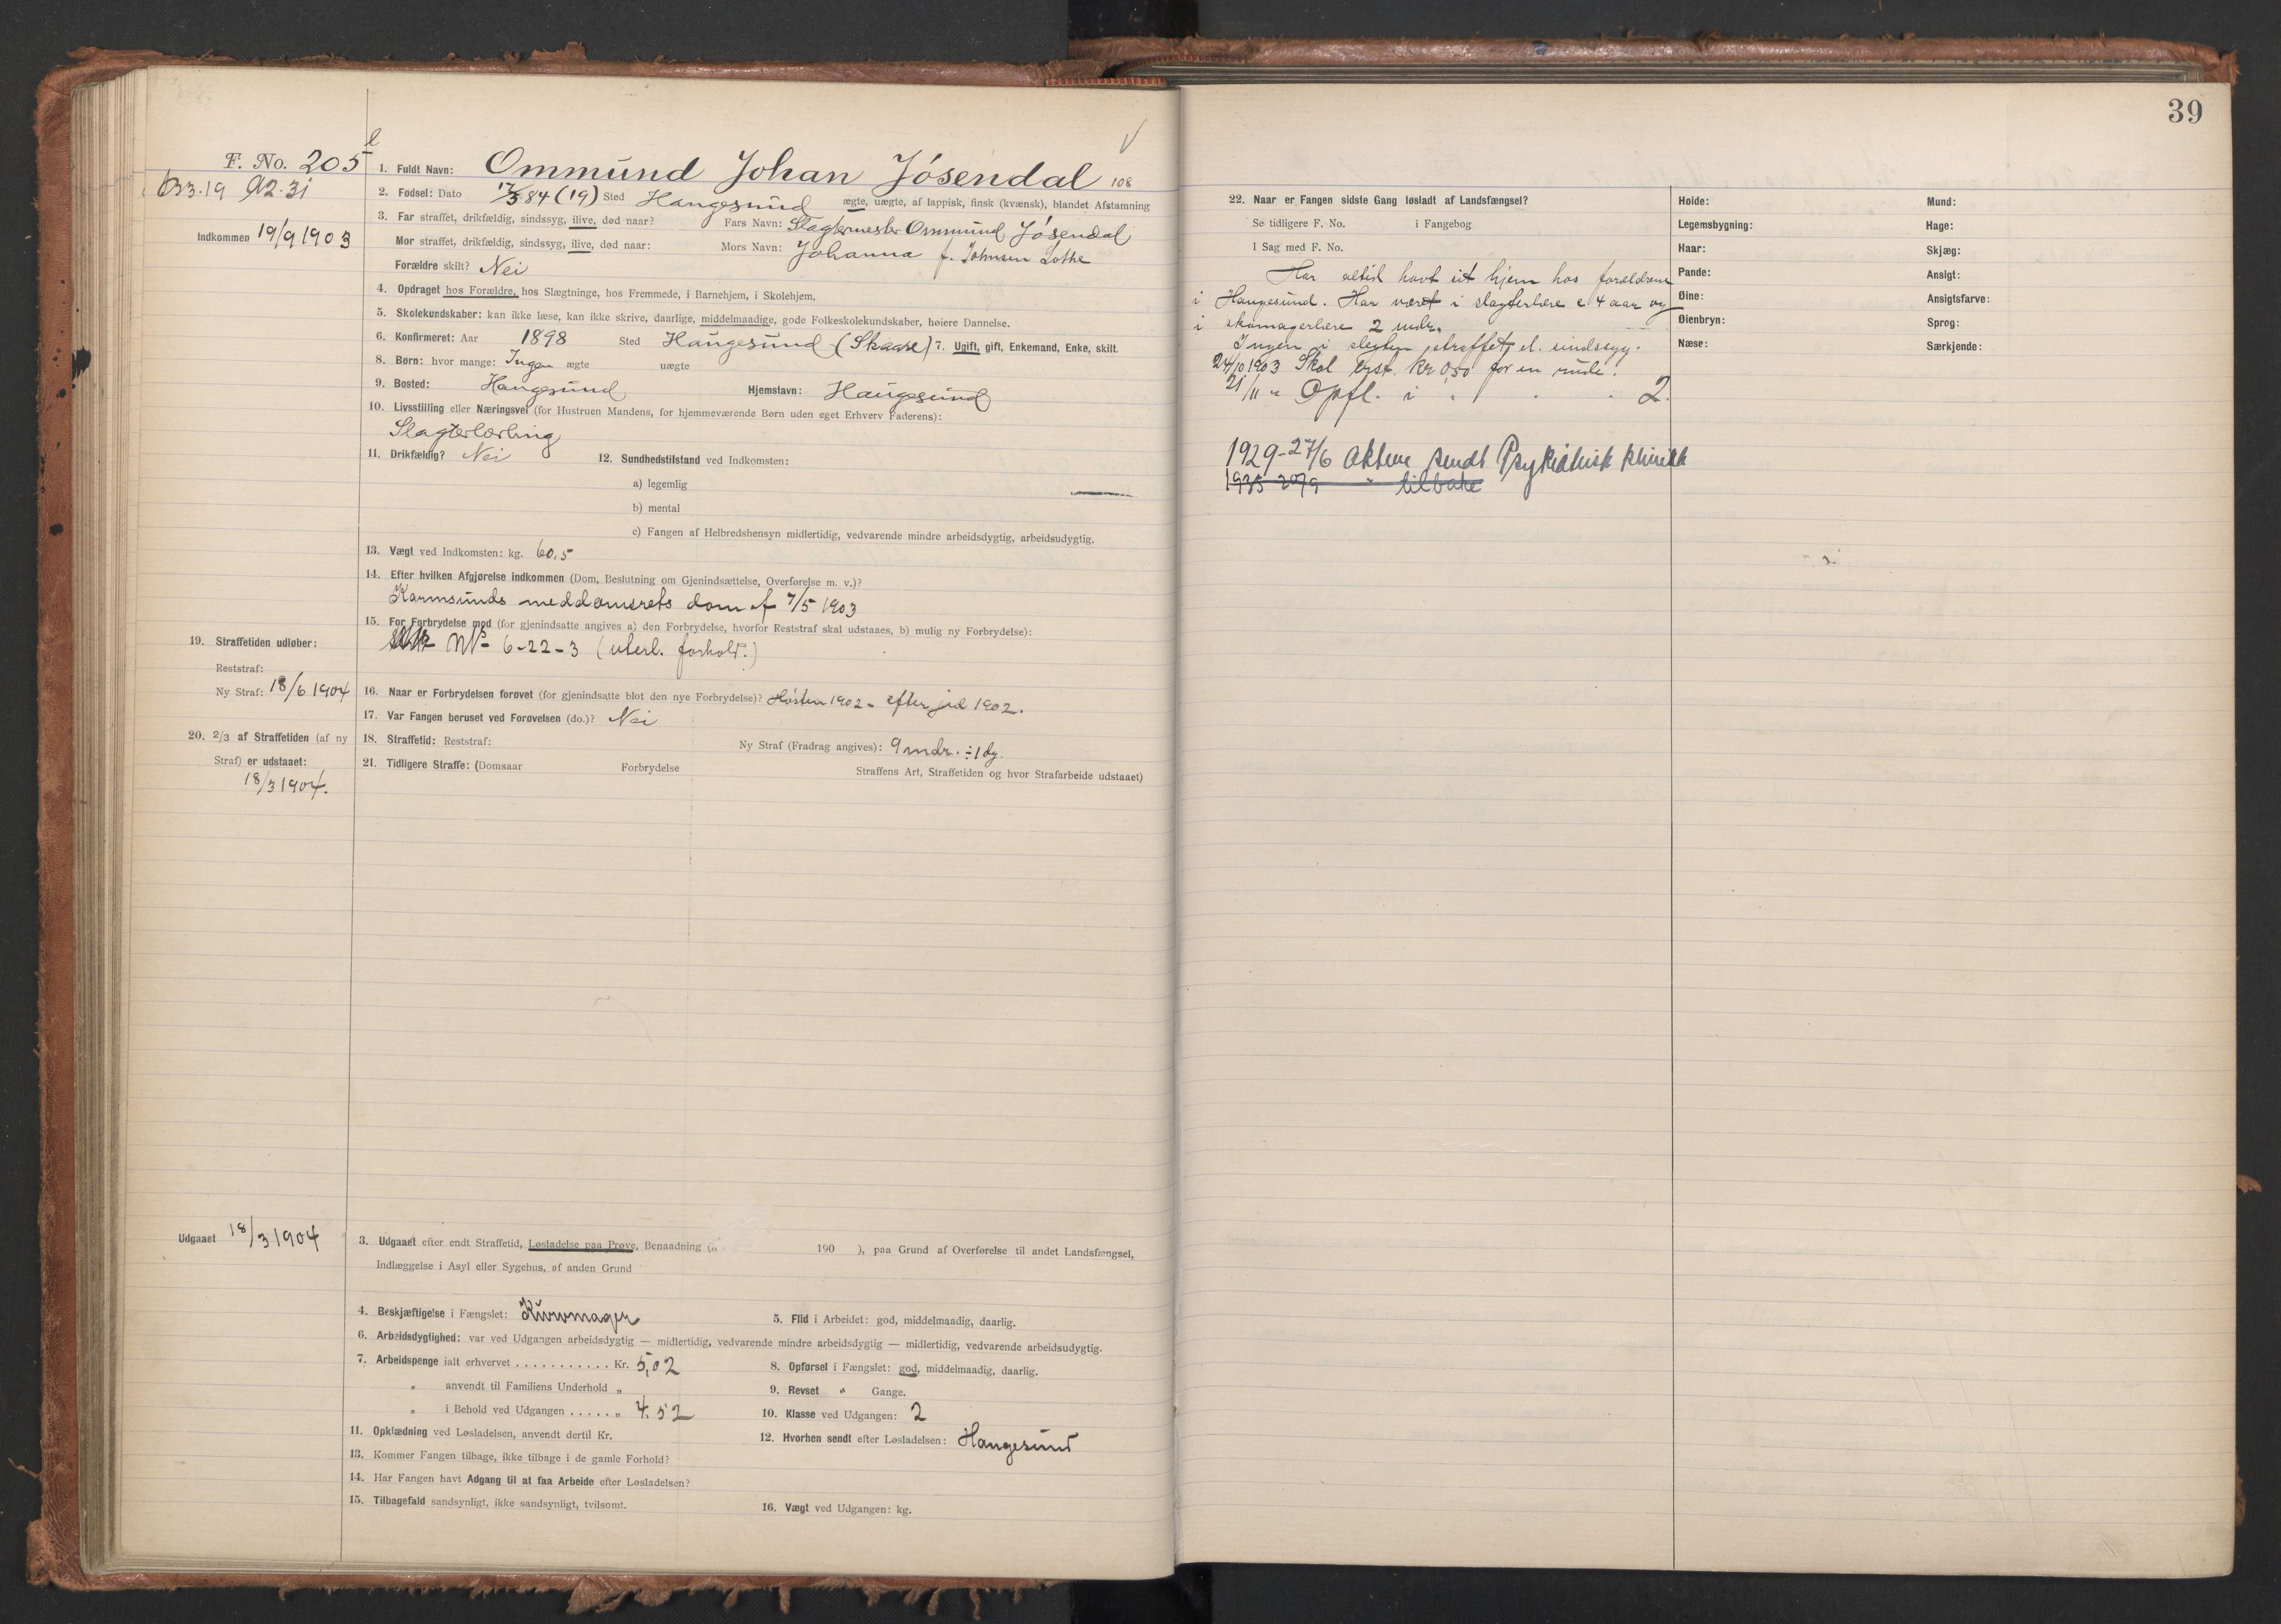 39
F. No. 205
B3.19 A2.31
Indkommen 19/9 1903
1. Fuldt Navn: Ommund Johan Jósendal 108
2. Fødsel: Dato 17/3 84 (19) Sted Haugesund ægte, uægte, af lappisk, finsk (kvænsk), blandet Afstamning
3. Far straffet, drikfældig, sindssyg, ilive, død naar? Fars Navn: Slagtermester Ommund Jósendal
Mor straffet, drikfældig, sindssyg, ilive, død naar: Mors Navn: Johanna f. Johnsen Lothe
Forældre skilt? Nei
4. Opdraget hos Forældre, hos Slægtninge, hos Fremmede, i Barnehjem, i Skolehjem.
5. Skolekundskaber: kan ikke læse, kan ikke skrive, daarlige, middelmaadige, gode Folkeskolekundskaber, høiere Dannelse.
6. Konfirmeret: Aar 1898 Sted Haugesund (Skaare) 7. Ugift, gift, Enkemand, Enke, skilt.
8. Børn: hvor mange: Ingen ægte uægte
9. Bosted: Haugesund Hjemstavn: Haugesund
10. Livsstilling eller Næringsvei (for Hustruen Mandens, for hjemmeværende Børn uden eget Erhverv Faderens):
Slagterlærling
11. Drikfældig? Nei 12. Sundhedstilstand ved Indkomsten:
a) legemlig
b) mental
c) Fangen af Helbredshensyn midlertidig, vedvarende mindre arbeidsdygtig, arbeidsudygtig.
13. Vægt ved Indkomsten: kg. 60,5
14. Efter hvilken Afgjørelse indkommen (Dom, Beslutning om Gjenindsættelse, Overførelse m. v.)?
Karmsunds meddomsrets dom af 7/5 1903
15. For Forbrydelse mod (for gjenindsatte angives a) den Forbrydelse, hvorfor Reststraf skal udstaaes, b) mulig ny Forbrydelse):
6-22-3 (uterl. forhold.)
19. Straffetiden udløber:
Reststraf:
Ny Straf: 18/6 1904
16. Naar er Forbrydelsen forøvet (for gjenindsatte blot den nye Forbrydelse)? Høsten 1902 - efter jul 1902.
17. Var Fangen beruset ved Forøvelsen (do.)? Nei
20. 2/3 af Straffetiden (af ny
Straf) er udstaaet:
18/3 1904.
18. Straffetid: Reststraf: Ny Straf (Fradrag angives): 9 mdr. ÷ 1 dg.
21. Tidligere Straffe: (Domsaar Forbrydelse Straffens Art, Straffetiden og hvor Strafarbeide udstaaet)
Udgaaet 18/3 1904
3. Udgaaet efter endt Straffetid, Løsladelse paa Prøve, Benaadning ( 190 ), paa Grund af Overførelse til andet Landsfængsel,
Indlæggelse i Asyl eller Sygehus, af anden Grund
4. Beskjæftigelse i Fængslet: Kurvmager 5. Flid i Arbeidet: god, middelmaadig, daarlig.
6. Arbeidsdygtighed: var ved Udgangen arbeidsdygtig — midlertidig, vedvarende mindre arbeidsdygtig — midlertidig, vedvarende arbeidsudygtig.
7. Arbeidspenge ialt erhvervet . . . . . . . . . . . Kr. 5,02 8. Opførsel i Fængslet: god, middelmaadig, daarlig.
„ anvendt til Familiens Underhold „ 9. Revset " Gange.
„ i Behold ved Udgangen . . . . . „ 4.52 10. Klasse ved Udgangen: 2
11. Opklædning ved Løsladelsen, anvendt dertil Kr. 12. Hvorhen sendt efter Løsladelsen: Haugesund
13. Kommer Fangen tilbage, ikke tilbage i de gamle Forhold?
14. Har Fangen havt Adgang til at faa Arbeide efter Løsladelsen?
15. Tilbagefald sandsynligt, ikke sandsynligt, tvilsomt. 16. Vægt ved Udgangen: kg.
22. Naar er Fangen sidste Gang løsladt af Landsfængsel?
Se tidligere F. No. i Fangebog
I Sag med F. No.
Har altid havt sit hjem hos forældrene
i Haugesund. Har været i slagterlære c 4 aar og
i skomagerlære 2 mdr.
Ingen i slegten straffet el. sindssyg.
24/10 1903 Skal erst. Kr 0,50 for en rude.
21/11 " Opfl. i " " 2.
1929 - 27/6 aktene sendt Psykiatrisk klinikk
1935 20/9 " tilbake
Høide: Mund:
Legemsbygning: Hage:
Haar: Skjæg:
Pande: Ansigt:
Øine: Ansigtsfarve:
Øienbryn: Sprog:
Næse: Særkjende: